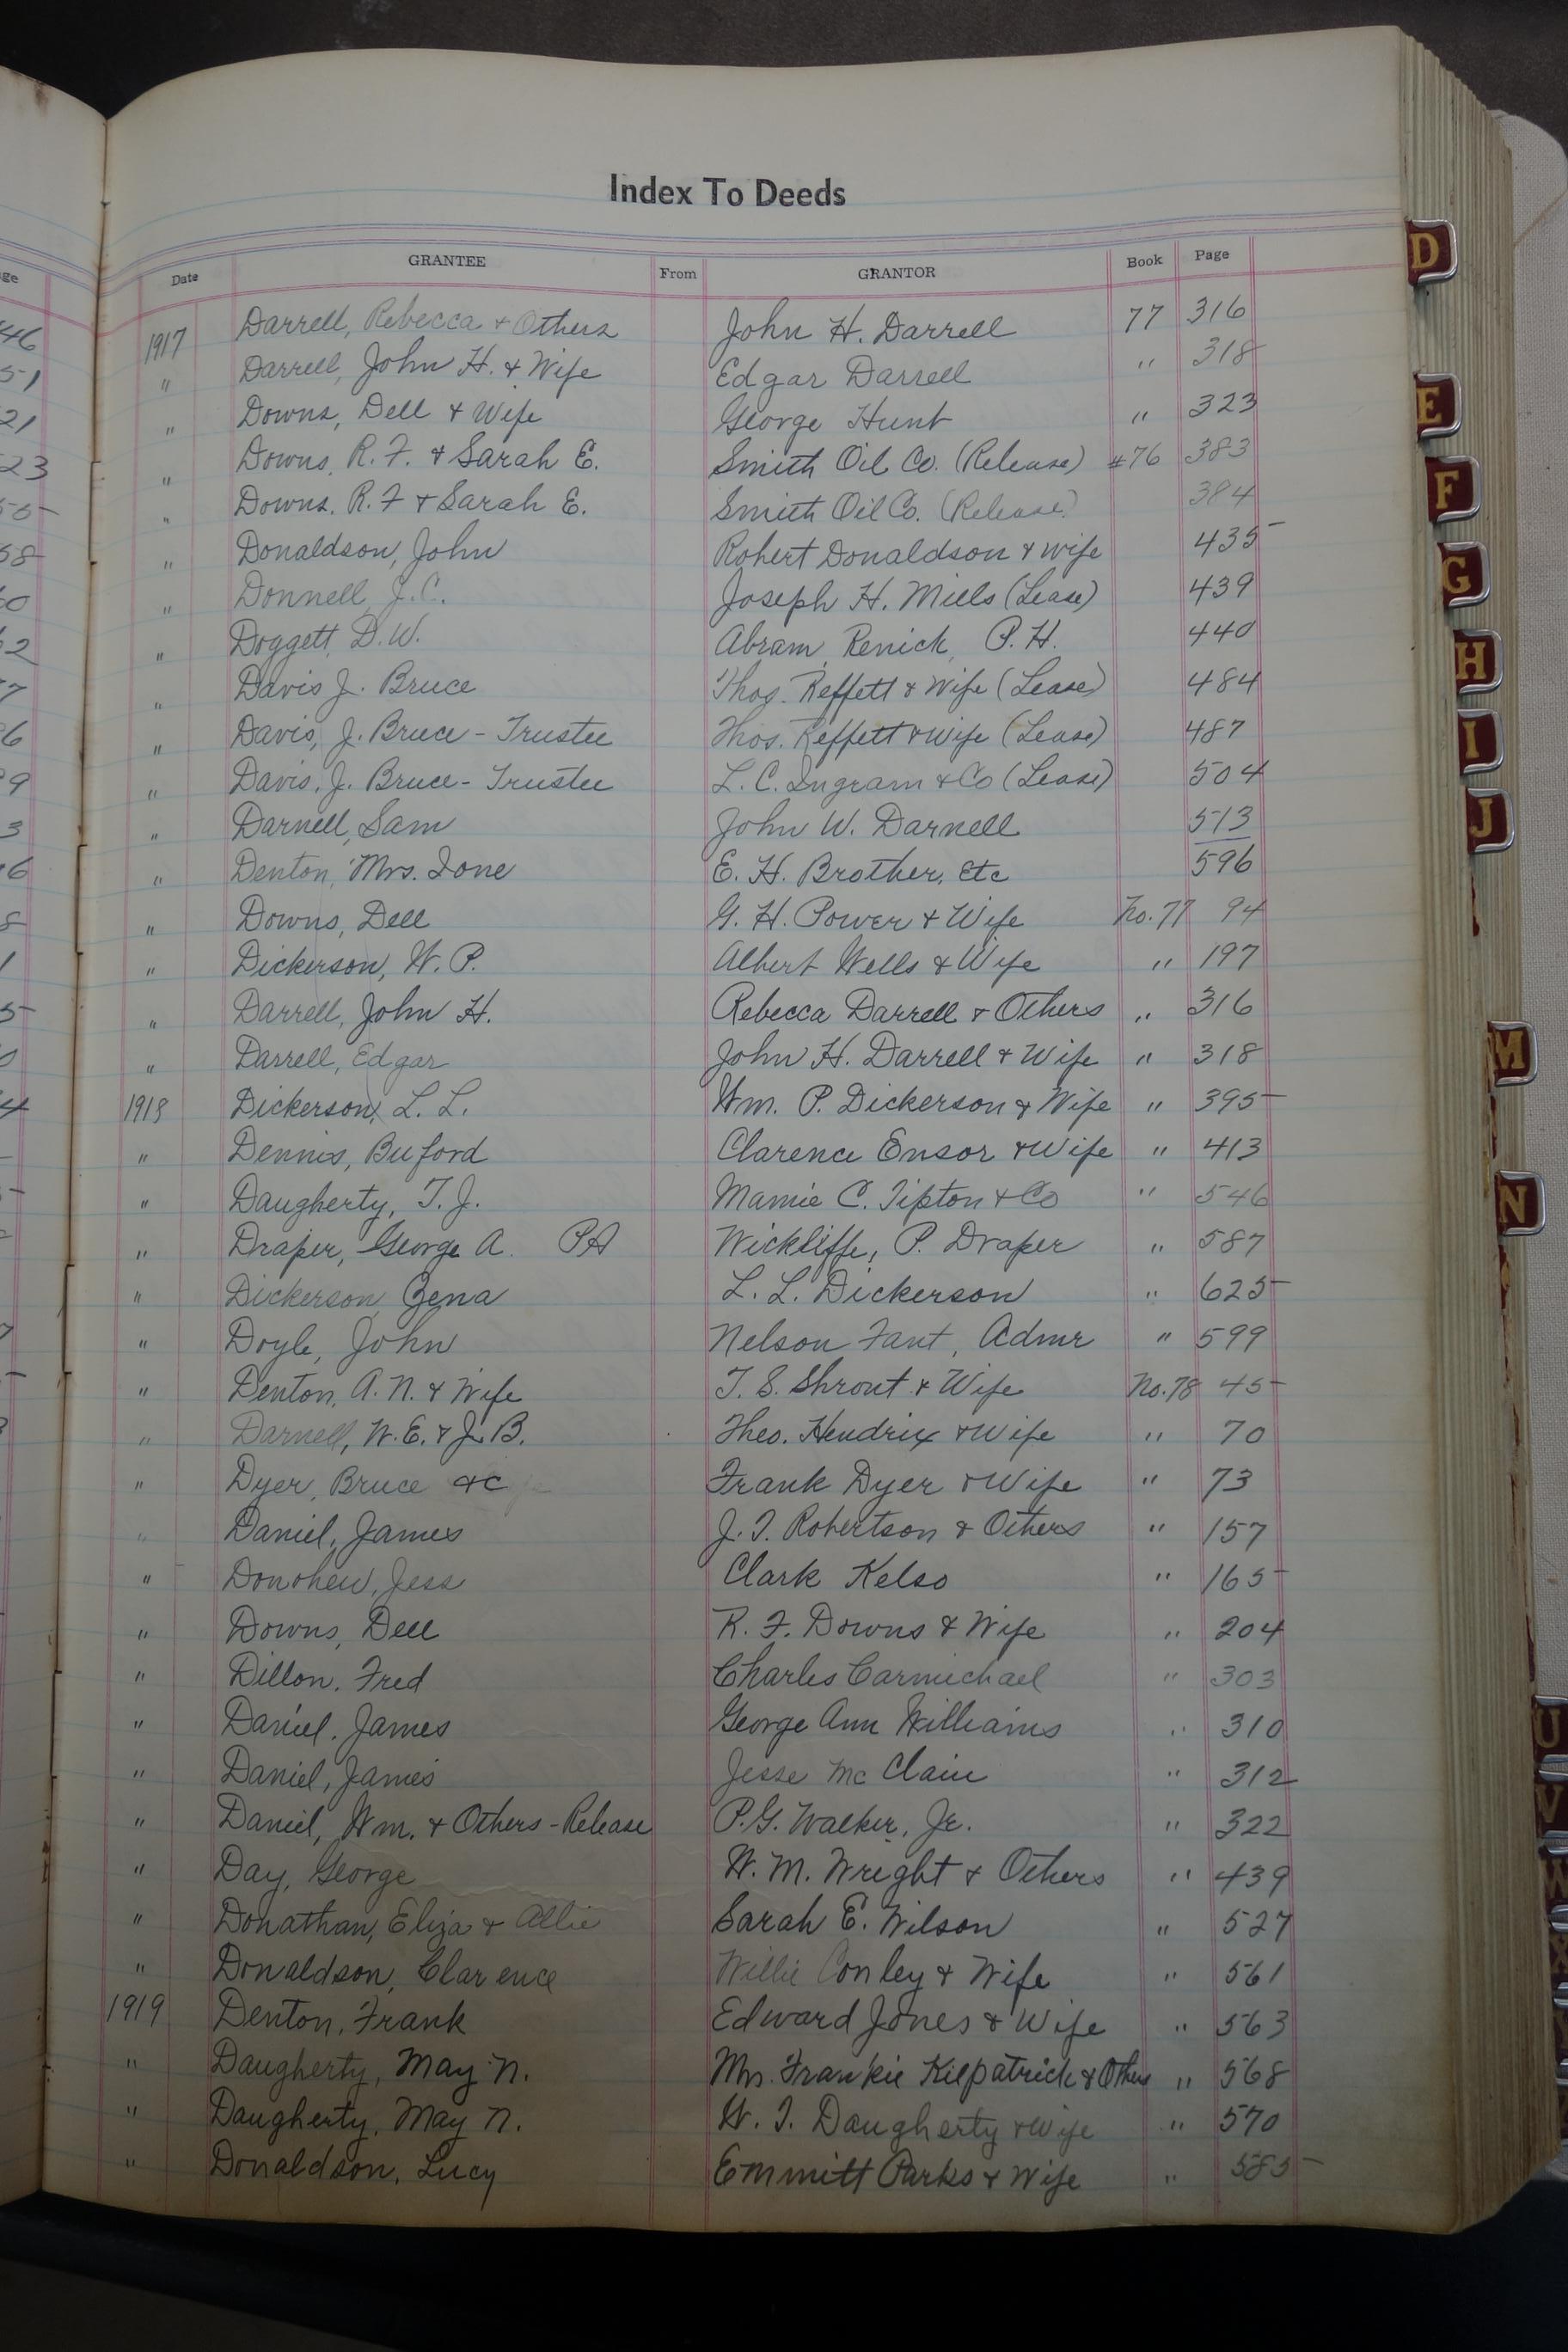 Index To Deeds
Date GRANTEE From GRANTOR Book Page
1917 Darrell, Rebecca & Others John H. Darrell 77 316
" Darrell, John H. & Wife Edgar Darrell " 318
" Downs, Dell & Wife George Hunt " 323
" Downs, R. F. & Sarah E. Smith Oil Co. (Release) #76 383
" Downs, R. F & Sarah E. Smith Oil Co. (Release) 384
" Donaldson, John Robert Donaldson & wife 435
" Donnell, J. C. Joseph H. Mills (Lease) 439
" Doggett, D. W. Abram Renick, P. H. 440
" Davis J. Bruce Thos. Reffett & Wife (Lease) 484
" Davis, J. Bruce - Trustee Thos. Reffett & Wife (Lease) 487
" Davis, J. Bruce - Trustee L. C. Ingram & Co (Lease) 504
" Darnell, Sam John W. Darnell 513
" Denton, Mrs. Ione E. H. Brother, Etc 596
" Downs, Dell G. H. Power & Wife No. 77 94
" Dickerson, W. P. Albert Wells & Wife " 197
" Darrell, John H. Rebecca Darrell & Others " 316
" Darrell, Edgar John H. Darrell & Wife " 318
1918 Dickerson, L. L. Wm. P. Dickerson & Wife " 395
" Dennis, Buford Clarence Ensor & Wife " 413
" Daugherty, T. J. Mamie C. Tipton & Co " 546
" Draper, George A. PA Wickliffe, P. Draper " 587
" Dickerson, Zena L. L. Dickerson " 625
" Doyle, John Nelson Fant, Admr " 599
" Denton, A. N. & Wife T. S. Shrout & Wife No. 78 45
" Darnell, W. E. & J. B. Theo. Hendrix & Wife " 70
" Dyer, Bruce &c Frank Dyer & Wife " 73
" Daniel, James J. T. Robertson & Others " 157
" Donohew, Jess Clark Kelso " 165
" Downs, Dell R. F. Downs & Wife " 204
" Dillon, Fred Charles Carmichael " 303
" Daniel, James George Ann Williams " 310
" Daniel, James Jesse Mc Clain " 312
" Daniel, Wm. & Others - Release P. G. Walker, Jr. " 322
" Day, George W. M. Wright & Others " 439
" Donathan, Eliza & Allie Sarah E. Wilson " 527
" Donaldson, Clarence Willie Conley & Wife " 561
1919 Denton, Frank Edward Jones & Wife " 563
" Daugherty, May N. Mrs. Frankie Kilpatrick & Others " 568
" Daugherty, May N. W. T. Daugherty & Wife " 570
" Donaldson, Lucy Emmitt Parks & Wife " 585
D
E
F
G
H
I
J
M
N
U
V
W